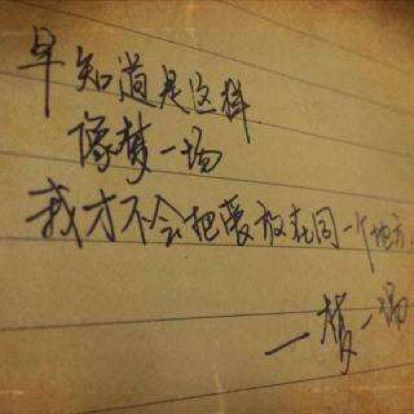 早知道是这样
像梦一场
我才不会把爱放在同一个地方
一梦一场